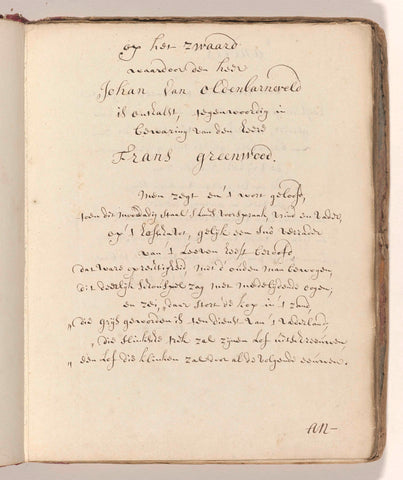 op het zwaard
waardoor den heer
Johan van Oldenbarneveld
is onthalst, tegenwoordig in
bewaring van den heere
Frans Greenwood.
Men zegt en 't wort gelooft,
toen dit moordadig staal 's Lands voorspraak, vrind en vader,
op 't schavot, gelijk een snô verrader
van 't leeven heeft berooft,
dat ware oprechtigheid, met d' ouden man bewogen,
dit deerlijk schouwspel zag met medelijdende oogen,
en zei, daar stort de kop in 't zand
„ die grijs geworden is ten dienst van 't vaderland,
„ die
nek zal zijnen lof uitschreeuwen
„ een lof die klinken zal door al de volgende eeuwen.
AN-